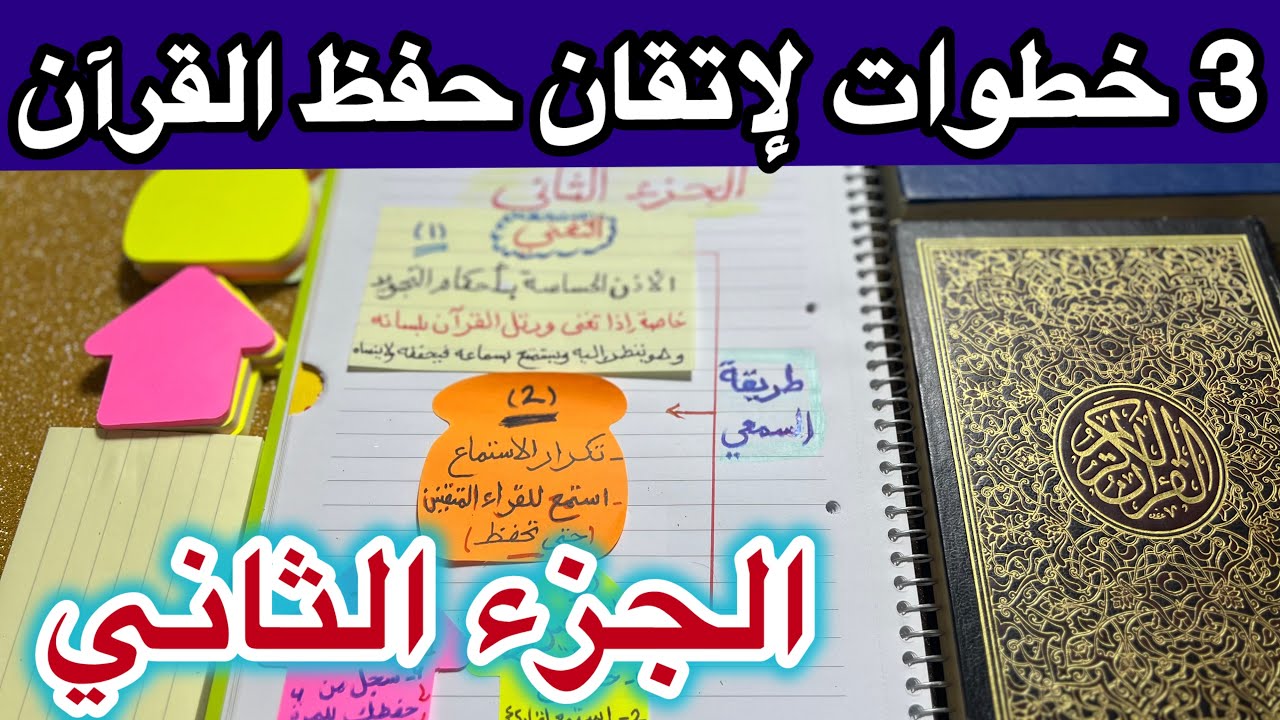 3 خطوات لإتقان حفظ القرآن
الجزء الثاني
(1) التغني
الأذن الحساسة بأحكام التجويد
خاصة إذا تغنى ورتل القرآن بلسانه
وهو ينظر إليه ويستمتع بسماعه فيحفظه ولا ينساه
طريقة
السمعي
(2)
- تكرار الاستماع
- استمع للقراء المتقنين
(حتى تحفظ)
القرآن الكريم
الجزء الثاني
1- سجل من
حفظك
2- استمع